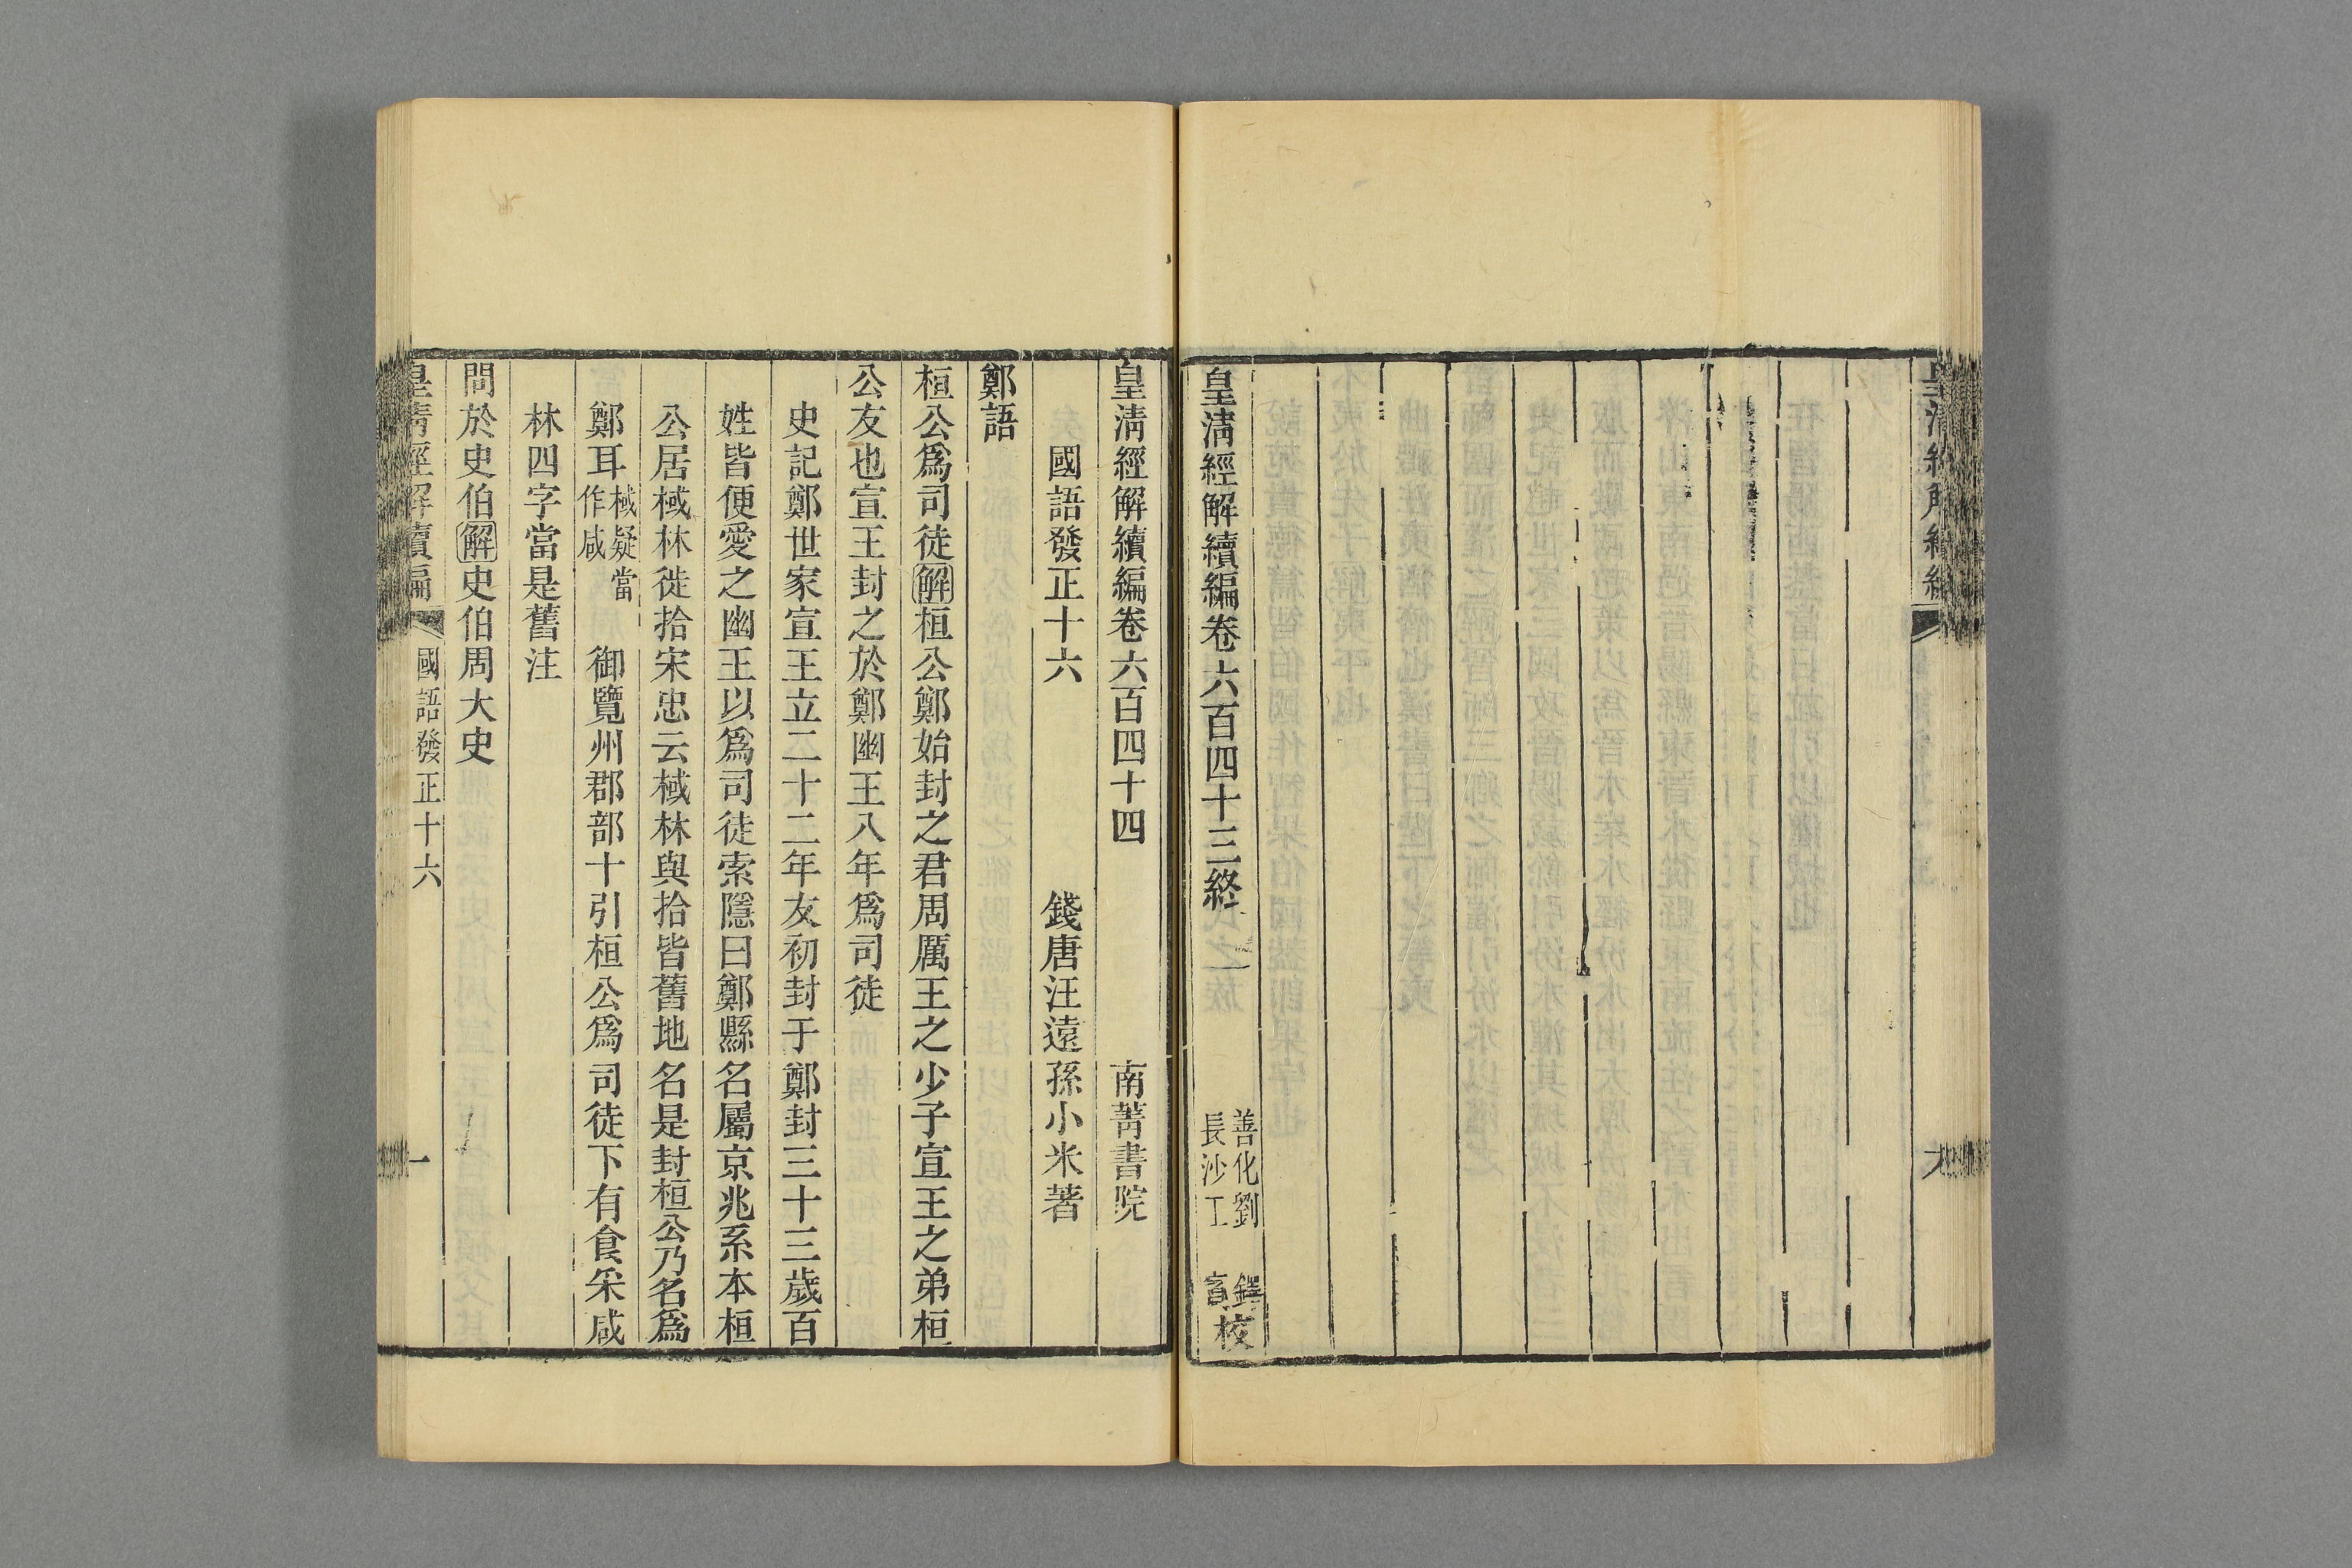 皇清經解續編卷六百四十三終
善化劉鐸
長沙工 校
皇清經解續編卷六百四十四
南菁書院
國語發正十六
錢唐汪遠孫小米著
鄭語
桓公爲司徒解桓公鄭始封之君周厲王之少子宣王之弟桓
公友也宣王封之於鄭幽王八年爲司徒
史記鄭世家宣王立二十二年友初封于鄭封三十三歲百
姓皆便愛之幽王以爲司徒索隱曰鄭縣名屬京兆系本桓
公居棫林徙拾宋忠云棫林與拾皆舊地名是封桓公乃名爲
鄭耳棫疑當作咸御覽州郡部十引桓公爲司徒下有食采咸
林四字當是舊注
問於史伯解史伯周大史
皇清經解續編
國語發正十六
一